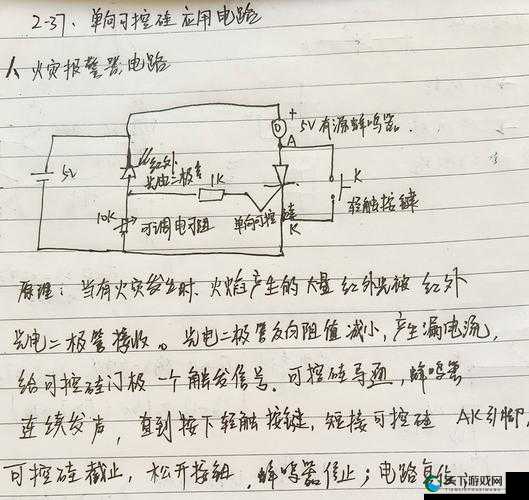 2-37、单向可控硅应用电路
火灾报警器电路
+
5V有源蜂鸣器.
A
5V
红外
光电二极管
1K
K
轻触按键
10K
可调电阻
单向可控硅
K
原理：当有火灾发生时、火焰产生的大量红外光被红外
光电二极管接收。光电二极管反向阻值减小,产生漏电流,
给可控硅门极一个触发信号.可控硅导通,蜂鸣器
连续发声，直到按下轻触按键,短接可控硅 AK引脚,
可控硅截止，松开按钮,蜂鸣器停止；电路复位
天下游戏